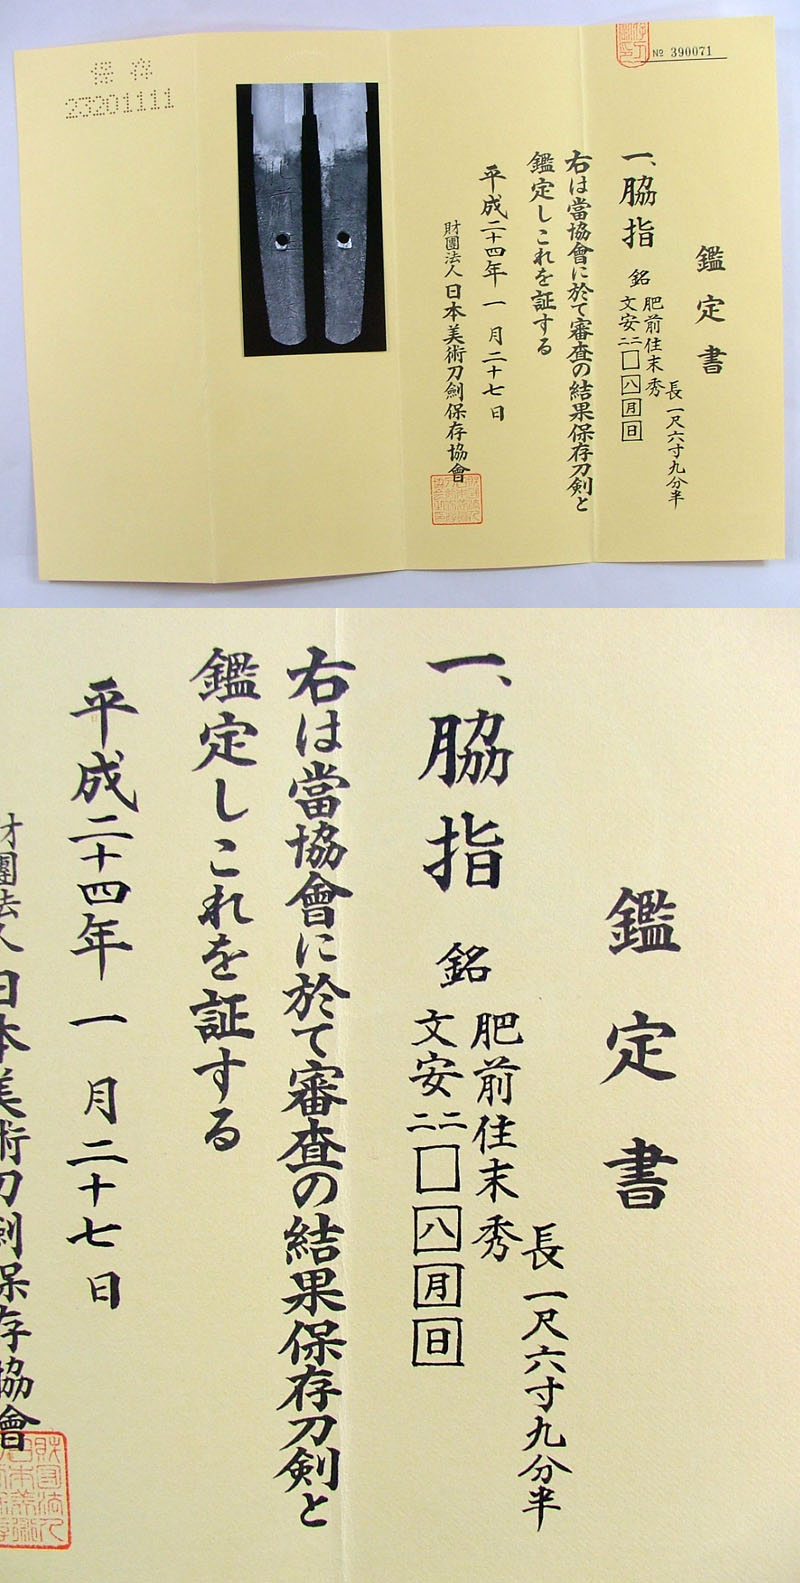 № 390071
鑑定書
長一尺六寸九分半
一、脇指 銘
肥前住末秀
文安二二□八月日
右は當協會に於て審査の結果保存刀剣と
鑑定しこれを証する
平成二十四年一月二十七日
財團法人日本美術刀劍保存協會
保存
23201111
鑑定書
長一尺六寸九分半
一、脇指 銘
肥前住末秀
文安二二□八月日
右は當協會に於て審査の結果保存刀剣と
鑑定しこれを証する
平成二十四年一月二十七日
財團法人日本美術刀劍保存協會